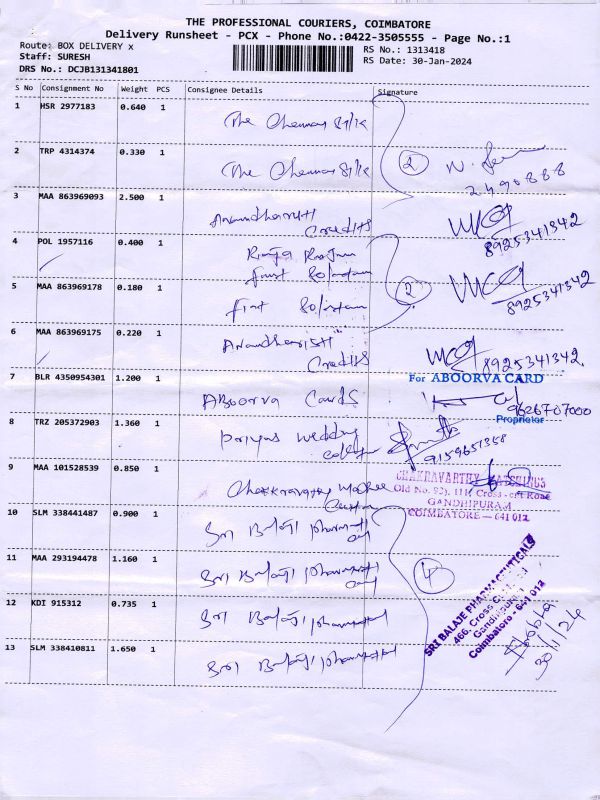 THE PROFESSIONAL COURIERS, COIMBATORE
Delivery Runsheet - PCX - Phone No.:0422-3505555 - Page No.:1
Route: BOX DELIVERY x
RS No.: 1313418
Staff: SURESH
RS Date: 30-Jan-2024
DRS No.: DCJB131341801
S No Consignment No Weight PCS Consignee Details Signature
1 HSR 2977183 0.640 1
The Chennai Silks
2 TRP 4314374 0.330 1
The Chennai Silks
2
2490888
3 MAA 863969093 2.500 1
Credits
8925341342
4 POL 1957116 0.400 1
5 MAA 863969178 0.180 1
2
8925341342
6 MAA 863969175 0.220 1
Credits
8925341342
7 BLR 4350954301 1.200 1
ABOORVA Cards
For ABOORVA CARD
9626707000
Proprietor
8 TRZ 205372903 1.360 1
Priyas Wedding
9159651358
9 MAA 101528539 0.850 1
CHAKRAVARTHY
GANDHIPURAM,
COIMBATORE - 641 012
10 SLM 338441487 0.900 1
Sri Balaji
11 MAA 293194478 1.160 1
Sri Balaji
4
12 KDI 915312 0.735 1
Sri Balaji
13 SLM 338410811 1.650 1
Sri Balaji
SRI BALAJE PHARMACEUTICALS
466, Cross
Gandhipuram
Coimbatore - 641 012
30/1/24